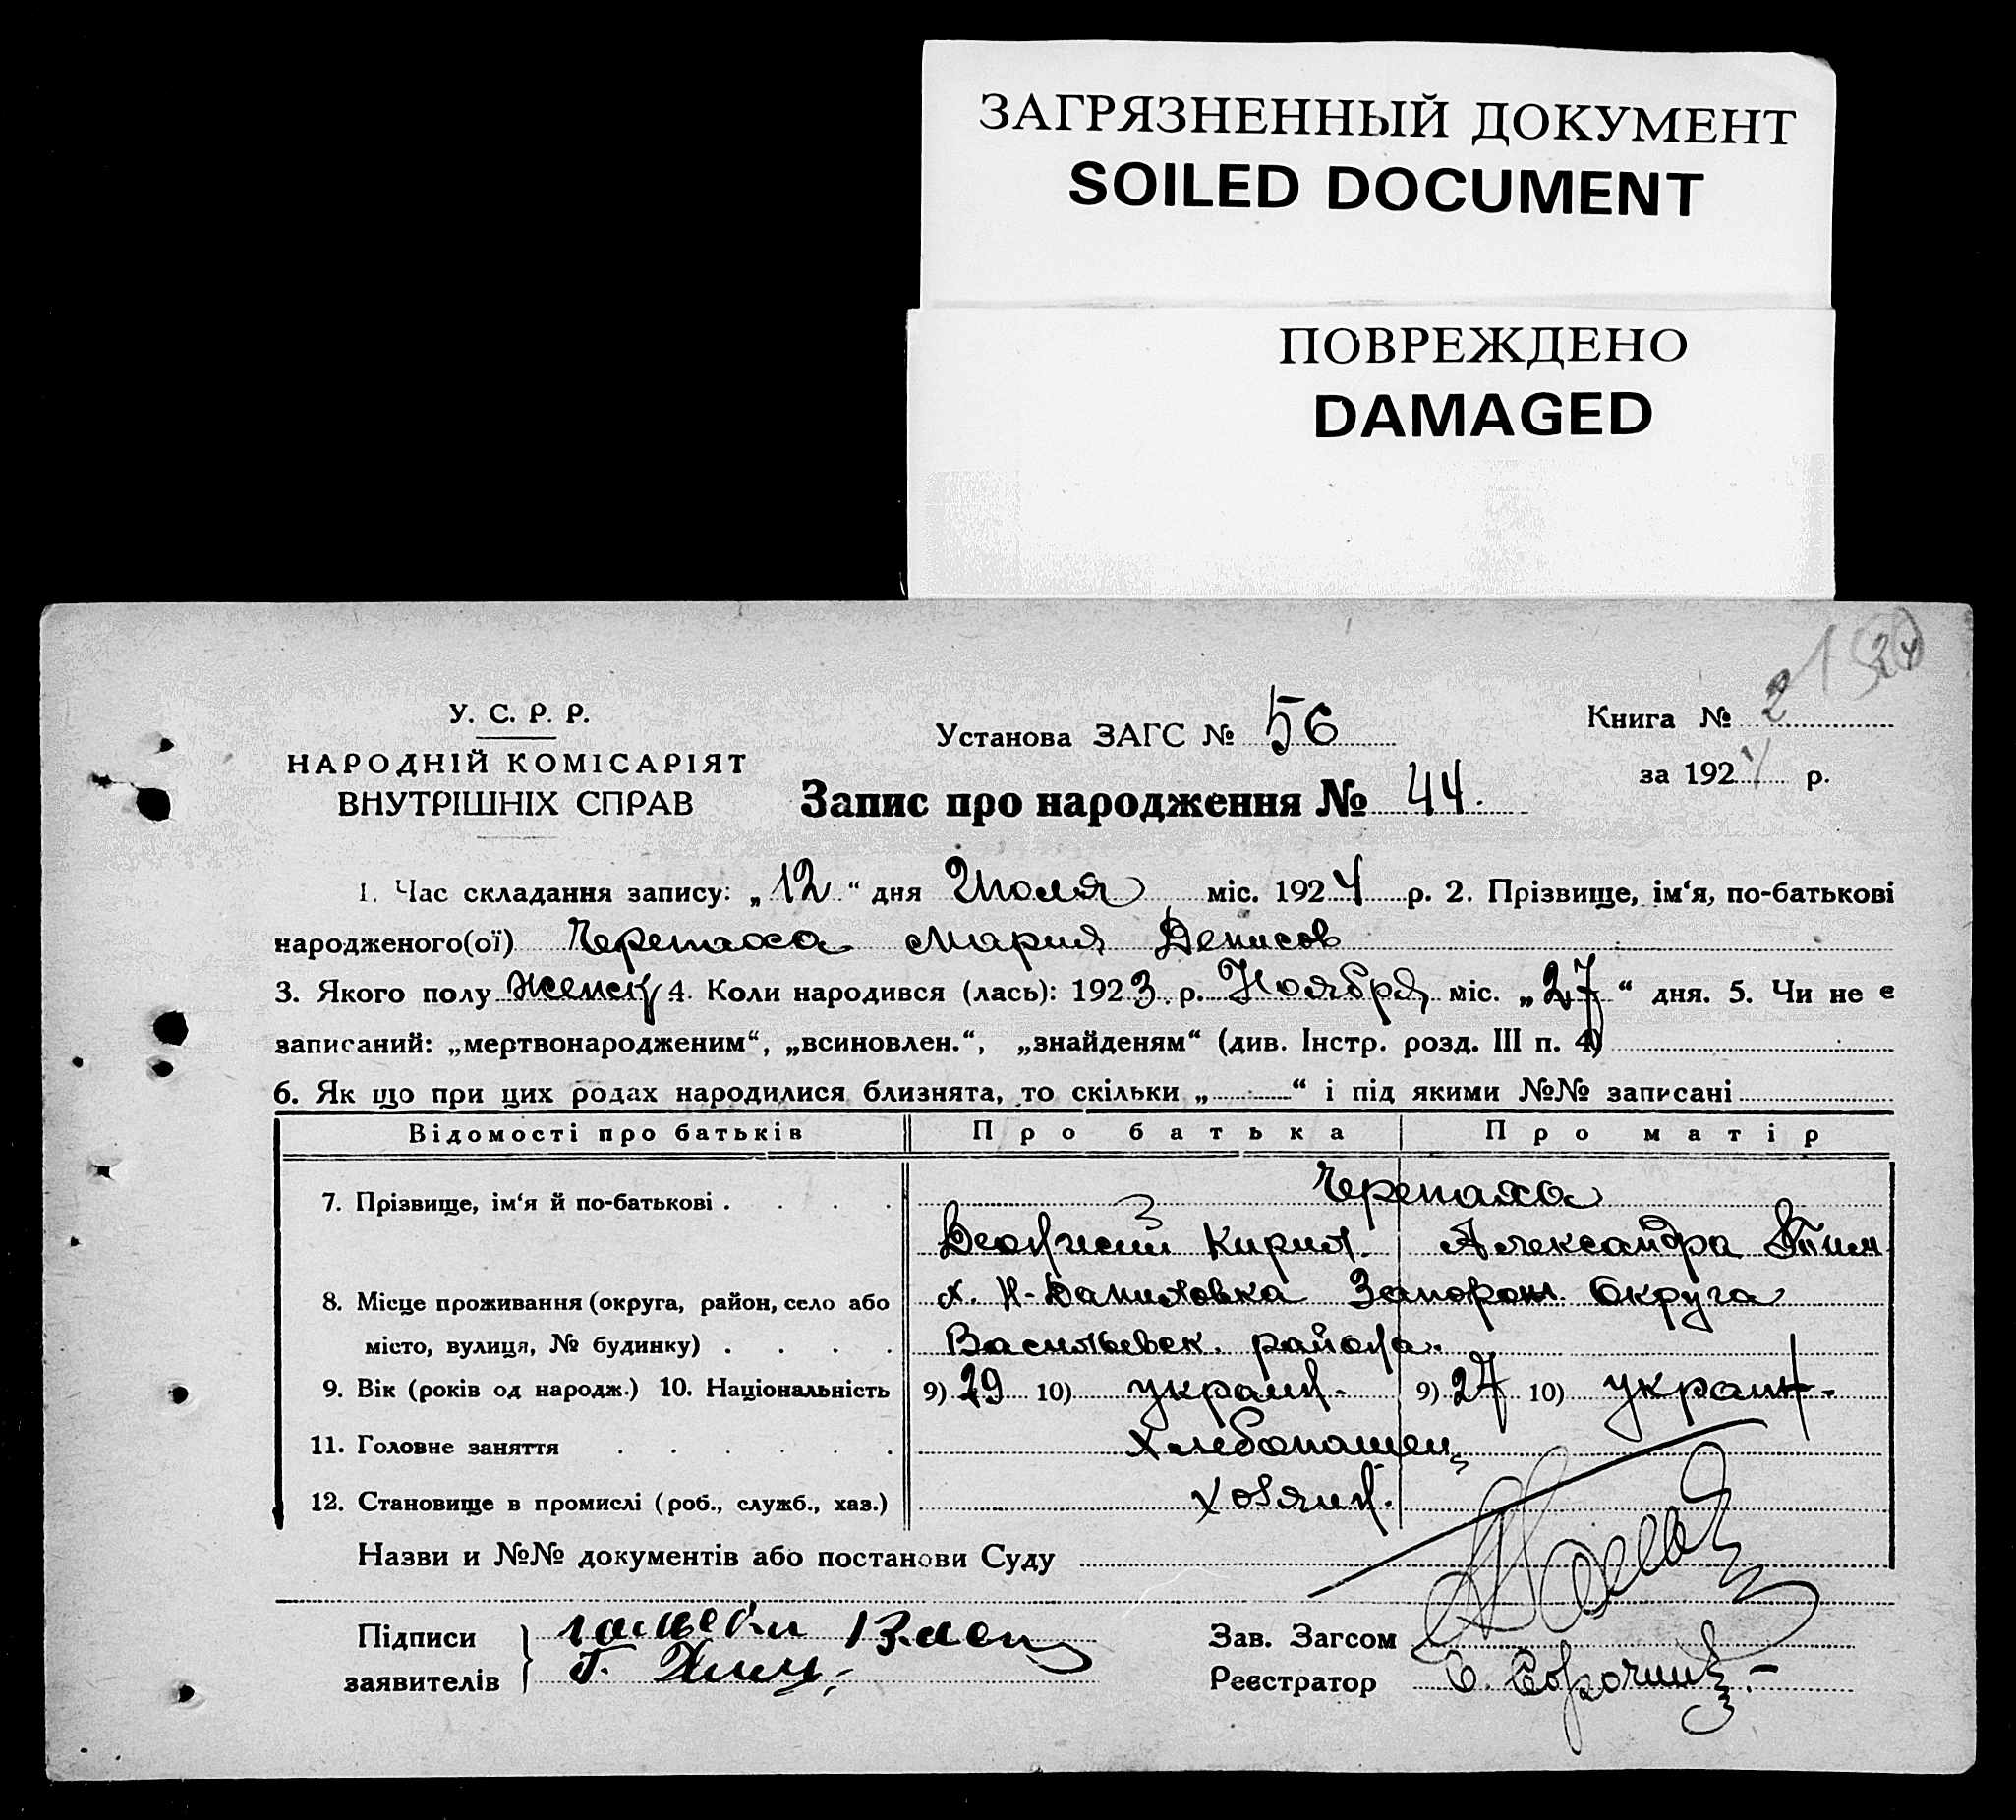 ЗАГРЯЗНЕННЫЙ ДОКУМЕНТ
SOILED DOCUMENT
ПОВРЕЖДЕНО
DAMAGED
У. С. Р. Р.
НАРОДНІЙ КОМІСАРІЯТ
ВНУТРІШНІХ СПРАВ
Установа ЗАГС № 56
Книга № 2
за 1924 р.
Запис про народження № 44.
1. Час складання запису: „12“ дня Июля міс. 1924 р. 2. Прізвище, ім‘я, по-батькові
народженого(ої) Черепаха Мария Денисов
3. Якого полу женск 4. Коли народився (лась): 1923 р. Ноября міс. „27“ дня. 5. Чи не є
записаний: „мертвонародженим“, „всиновлен.“, „знайденям“ (див. Інстр. розд. III п. 4)
6. Як що при цих родах народилися близнята, то скільки „ “ і під якими №№ записані
Відомості про батьків Про батька Про матір
7. Прізвище, ім‘я й по-батькові . . . . Черепаха
Деонисий Кирил. Александра Тим
8. Місце проживання (округа, район, село або х. Н-Даниловка Запорож. Округа
місто, вулиця, № будинку) . . . . Васильевск. района.
9. Вік (років од народж.) 10. Національність 9) 29 10) украин. 9) 27 10) украин.
11. Головне заняття . . . . . . Хлебопашец
12. Становище в промислі (роб., служб., хаз.) хозяин.
Назви и №№ документів або постанови Суду
Підписи
заявителів
Зав. Загсом
Реєстратор